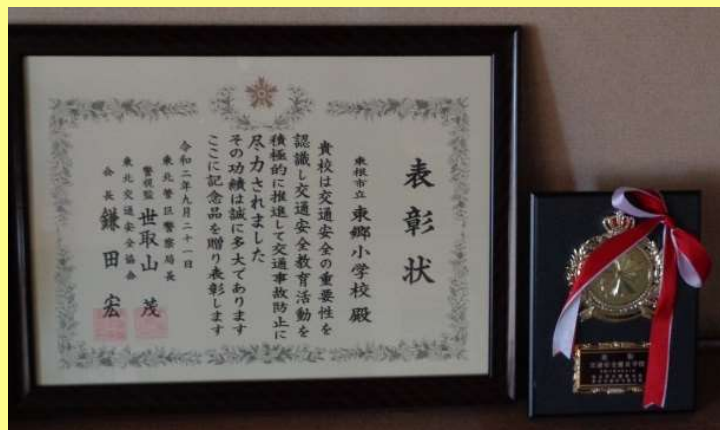 表彰状
東根市立 東郷小学校殿
貴校は交通安全の重要性を
認識し交通安全教育活動を
積極的に推進して交通事故防止に
尽力されました
その功績は誠に多大であります
ここに記念品を贈り表彰します
令和二年九月二十一日
東北管区警察局長
警視監 世取山 茂
東北交通安全協会
会長 鎌田 宏
表彰
交通安全優良学校